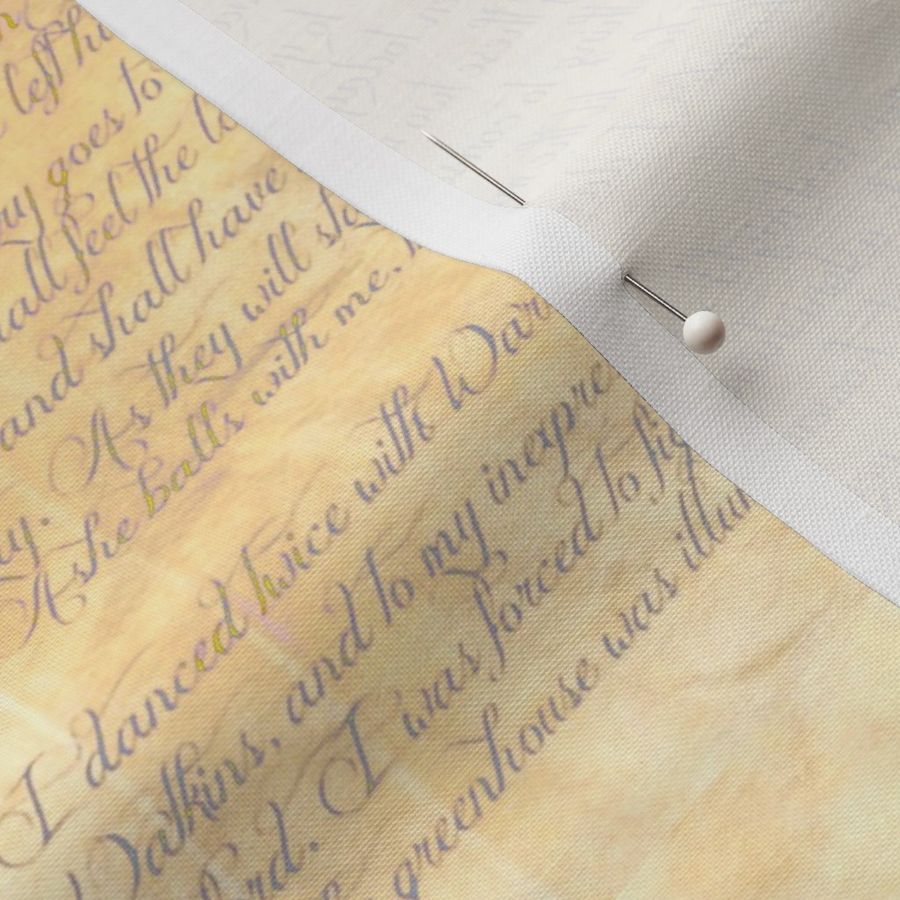 left hi
goes to
all feel the
and shall have
As they will
y. Ashe balls with me.
I danced twice with War
Watkins, and to my inexpre
ord. I was forced to fig
greenhouse was illum